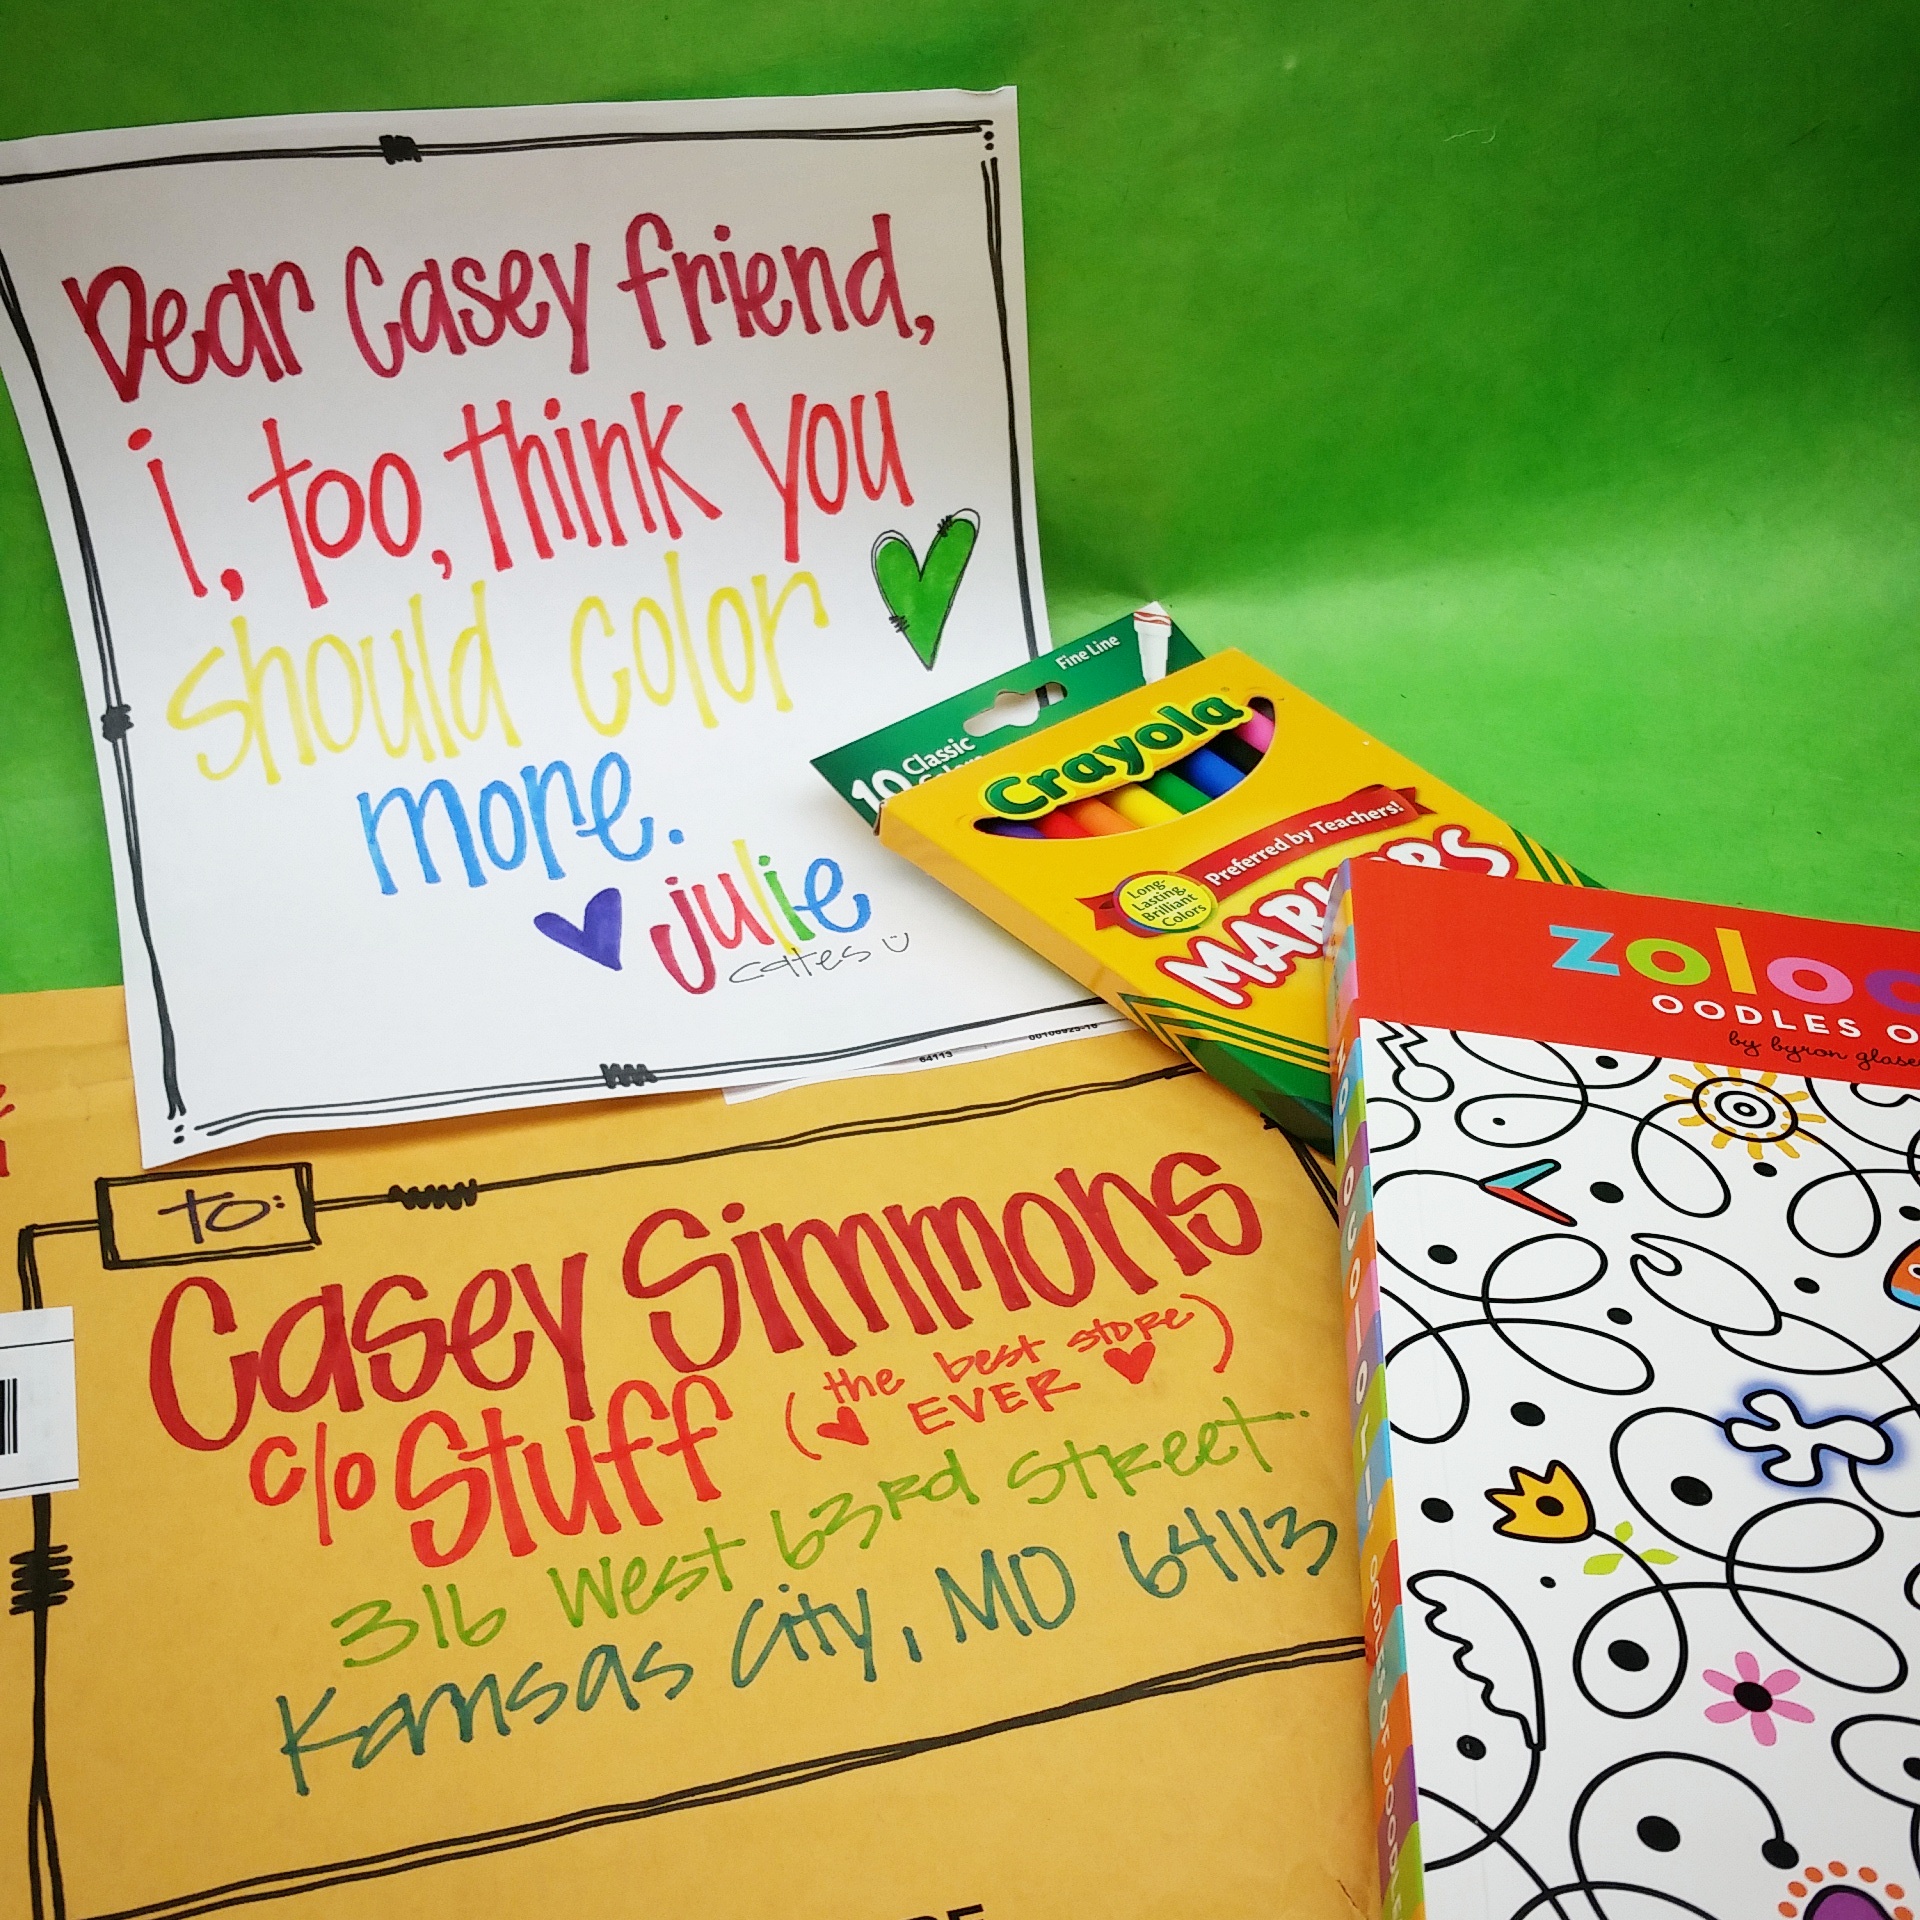 Dear Casey friend,
i, too, think you
should color
more.
julie
cates
Fine Line
10 Classic
Crayola
Preferred by Teachers!
Long-
Lasting,
Brilliant
Colors
OODLES
by byron
64113
to:
Casey Simmons
c/o Stuff (the best store
EVER)
316 West 63rd Street.
Kansas City, MO 64113